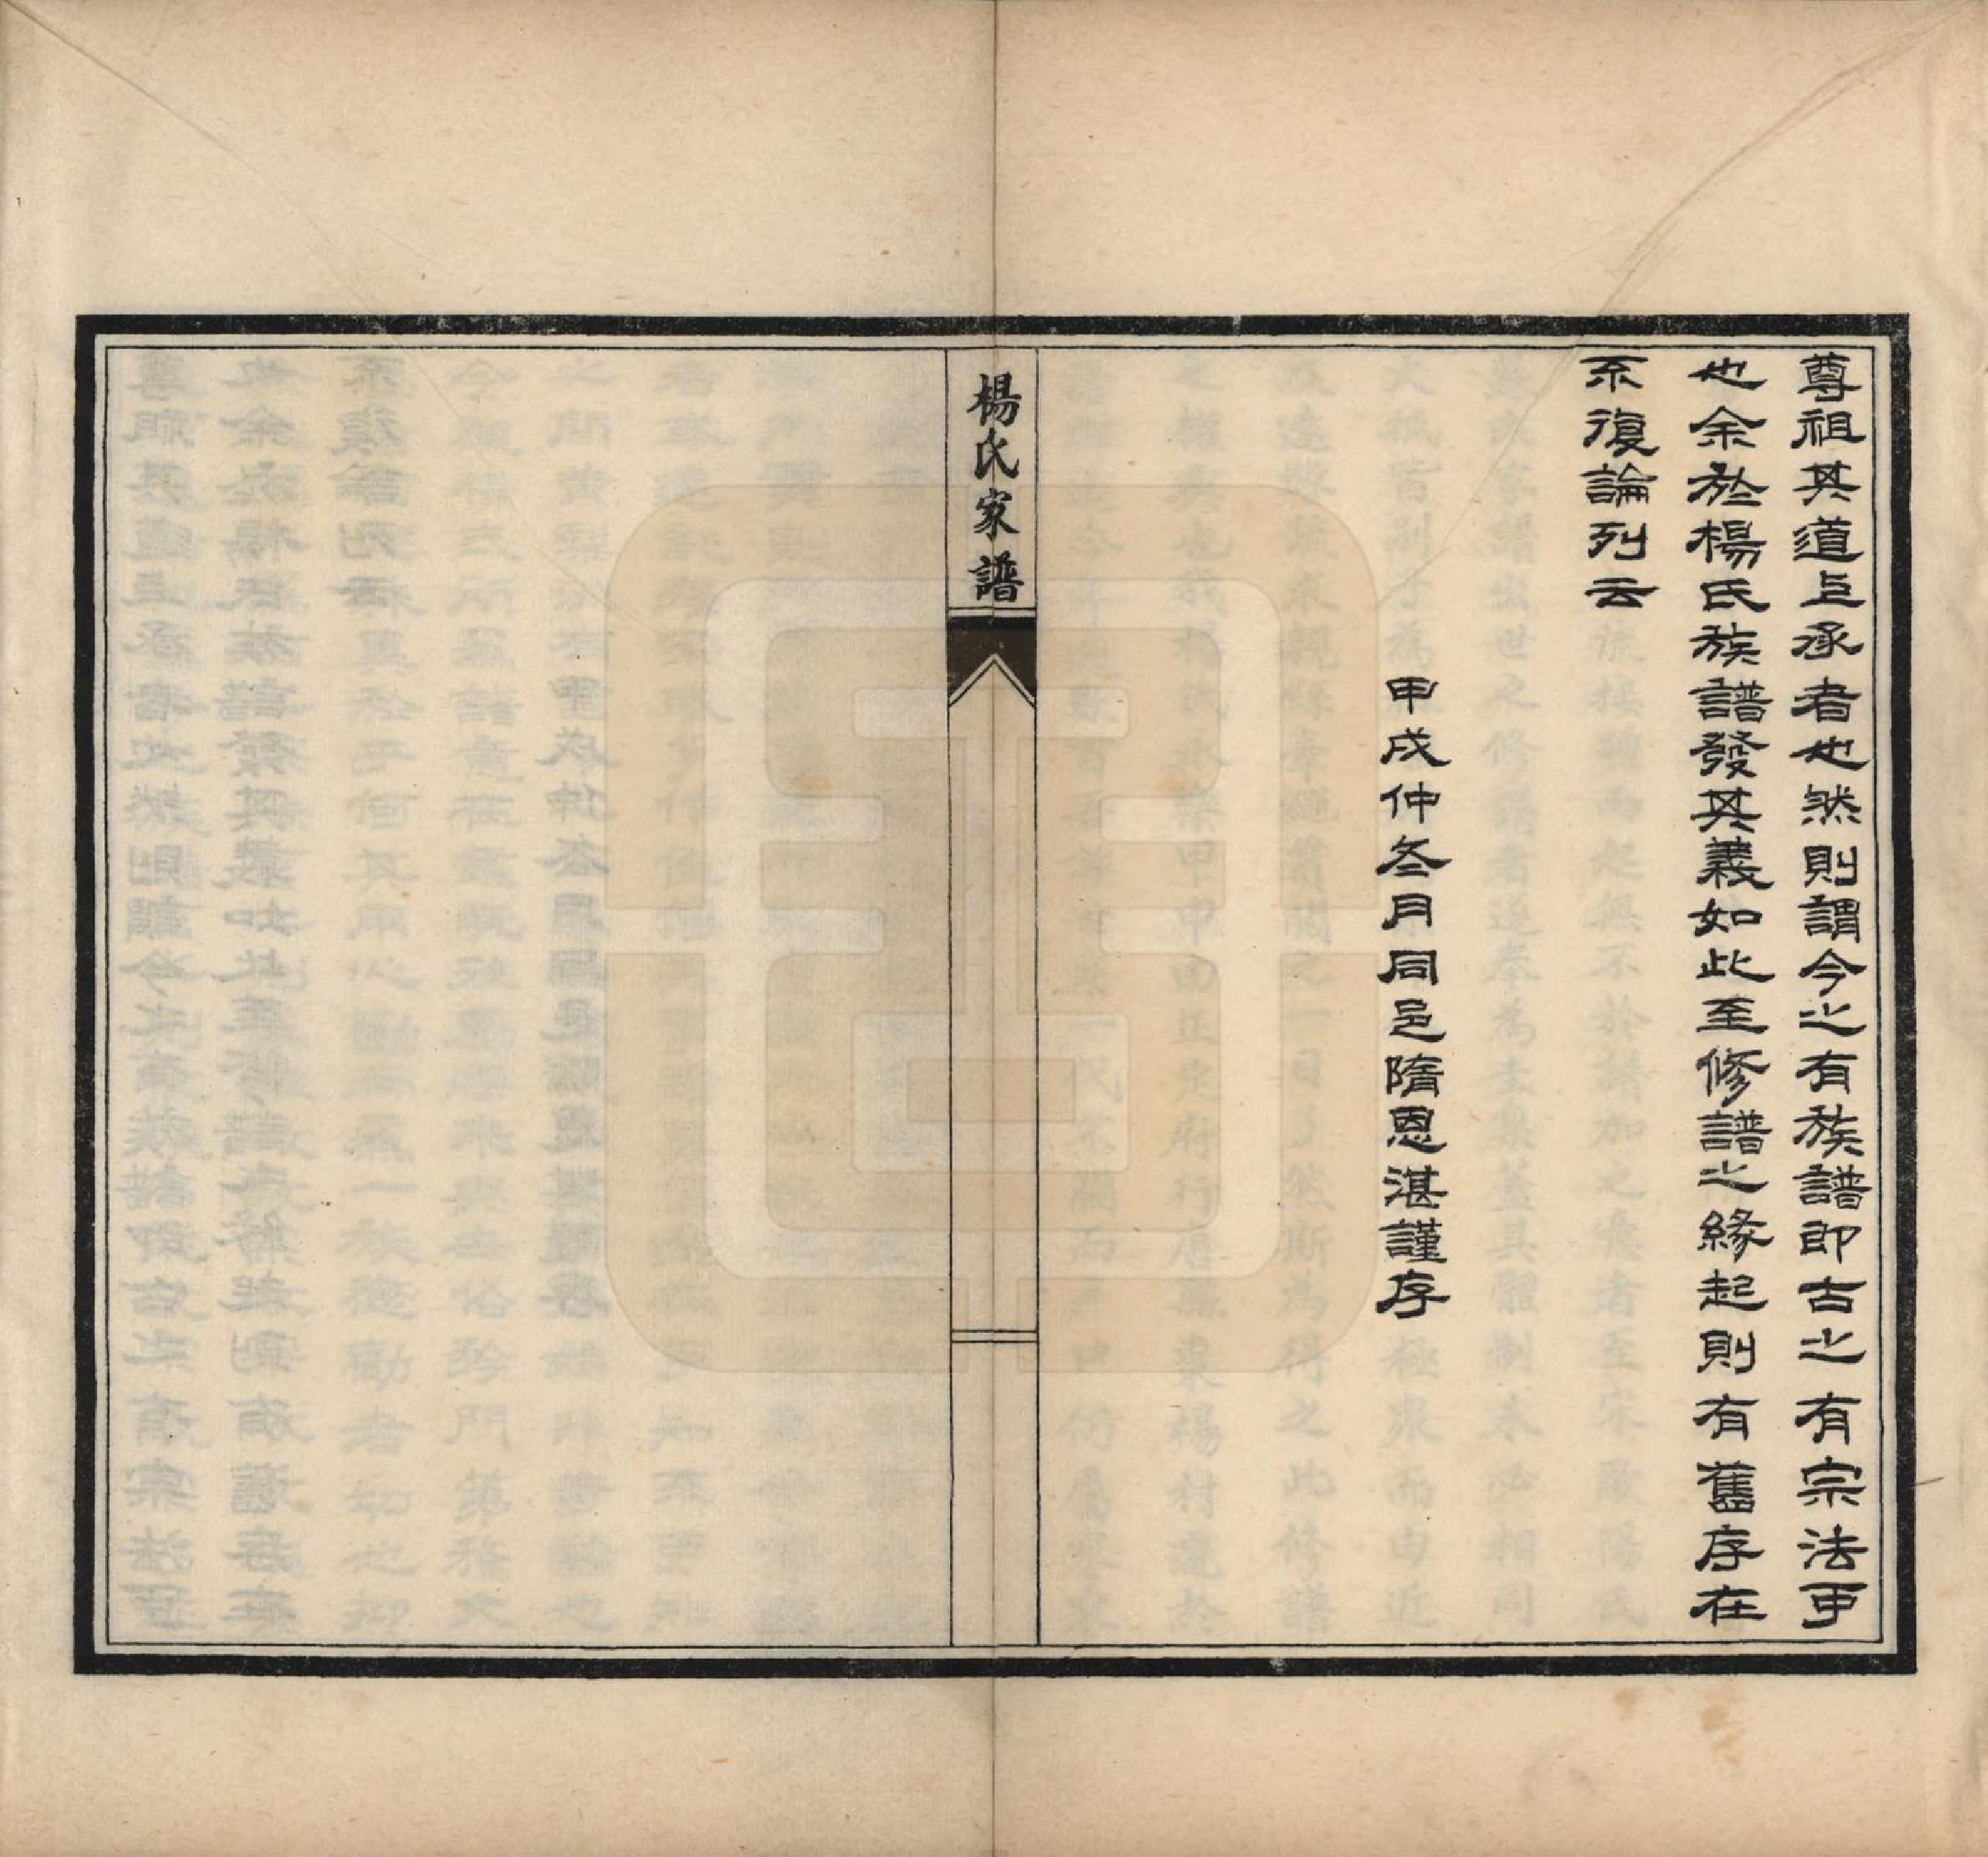 尊祖其道互承者也然則謂今之有族譜即古之有宗法可
也余於楊氏族譜發其義如此至修譜之緣起則有舊序在
不復論列云
甲戌仲冬月同邑隋恩湛謹序
楊氏家譜